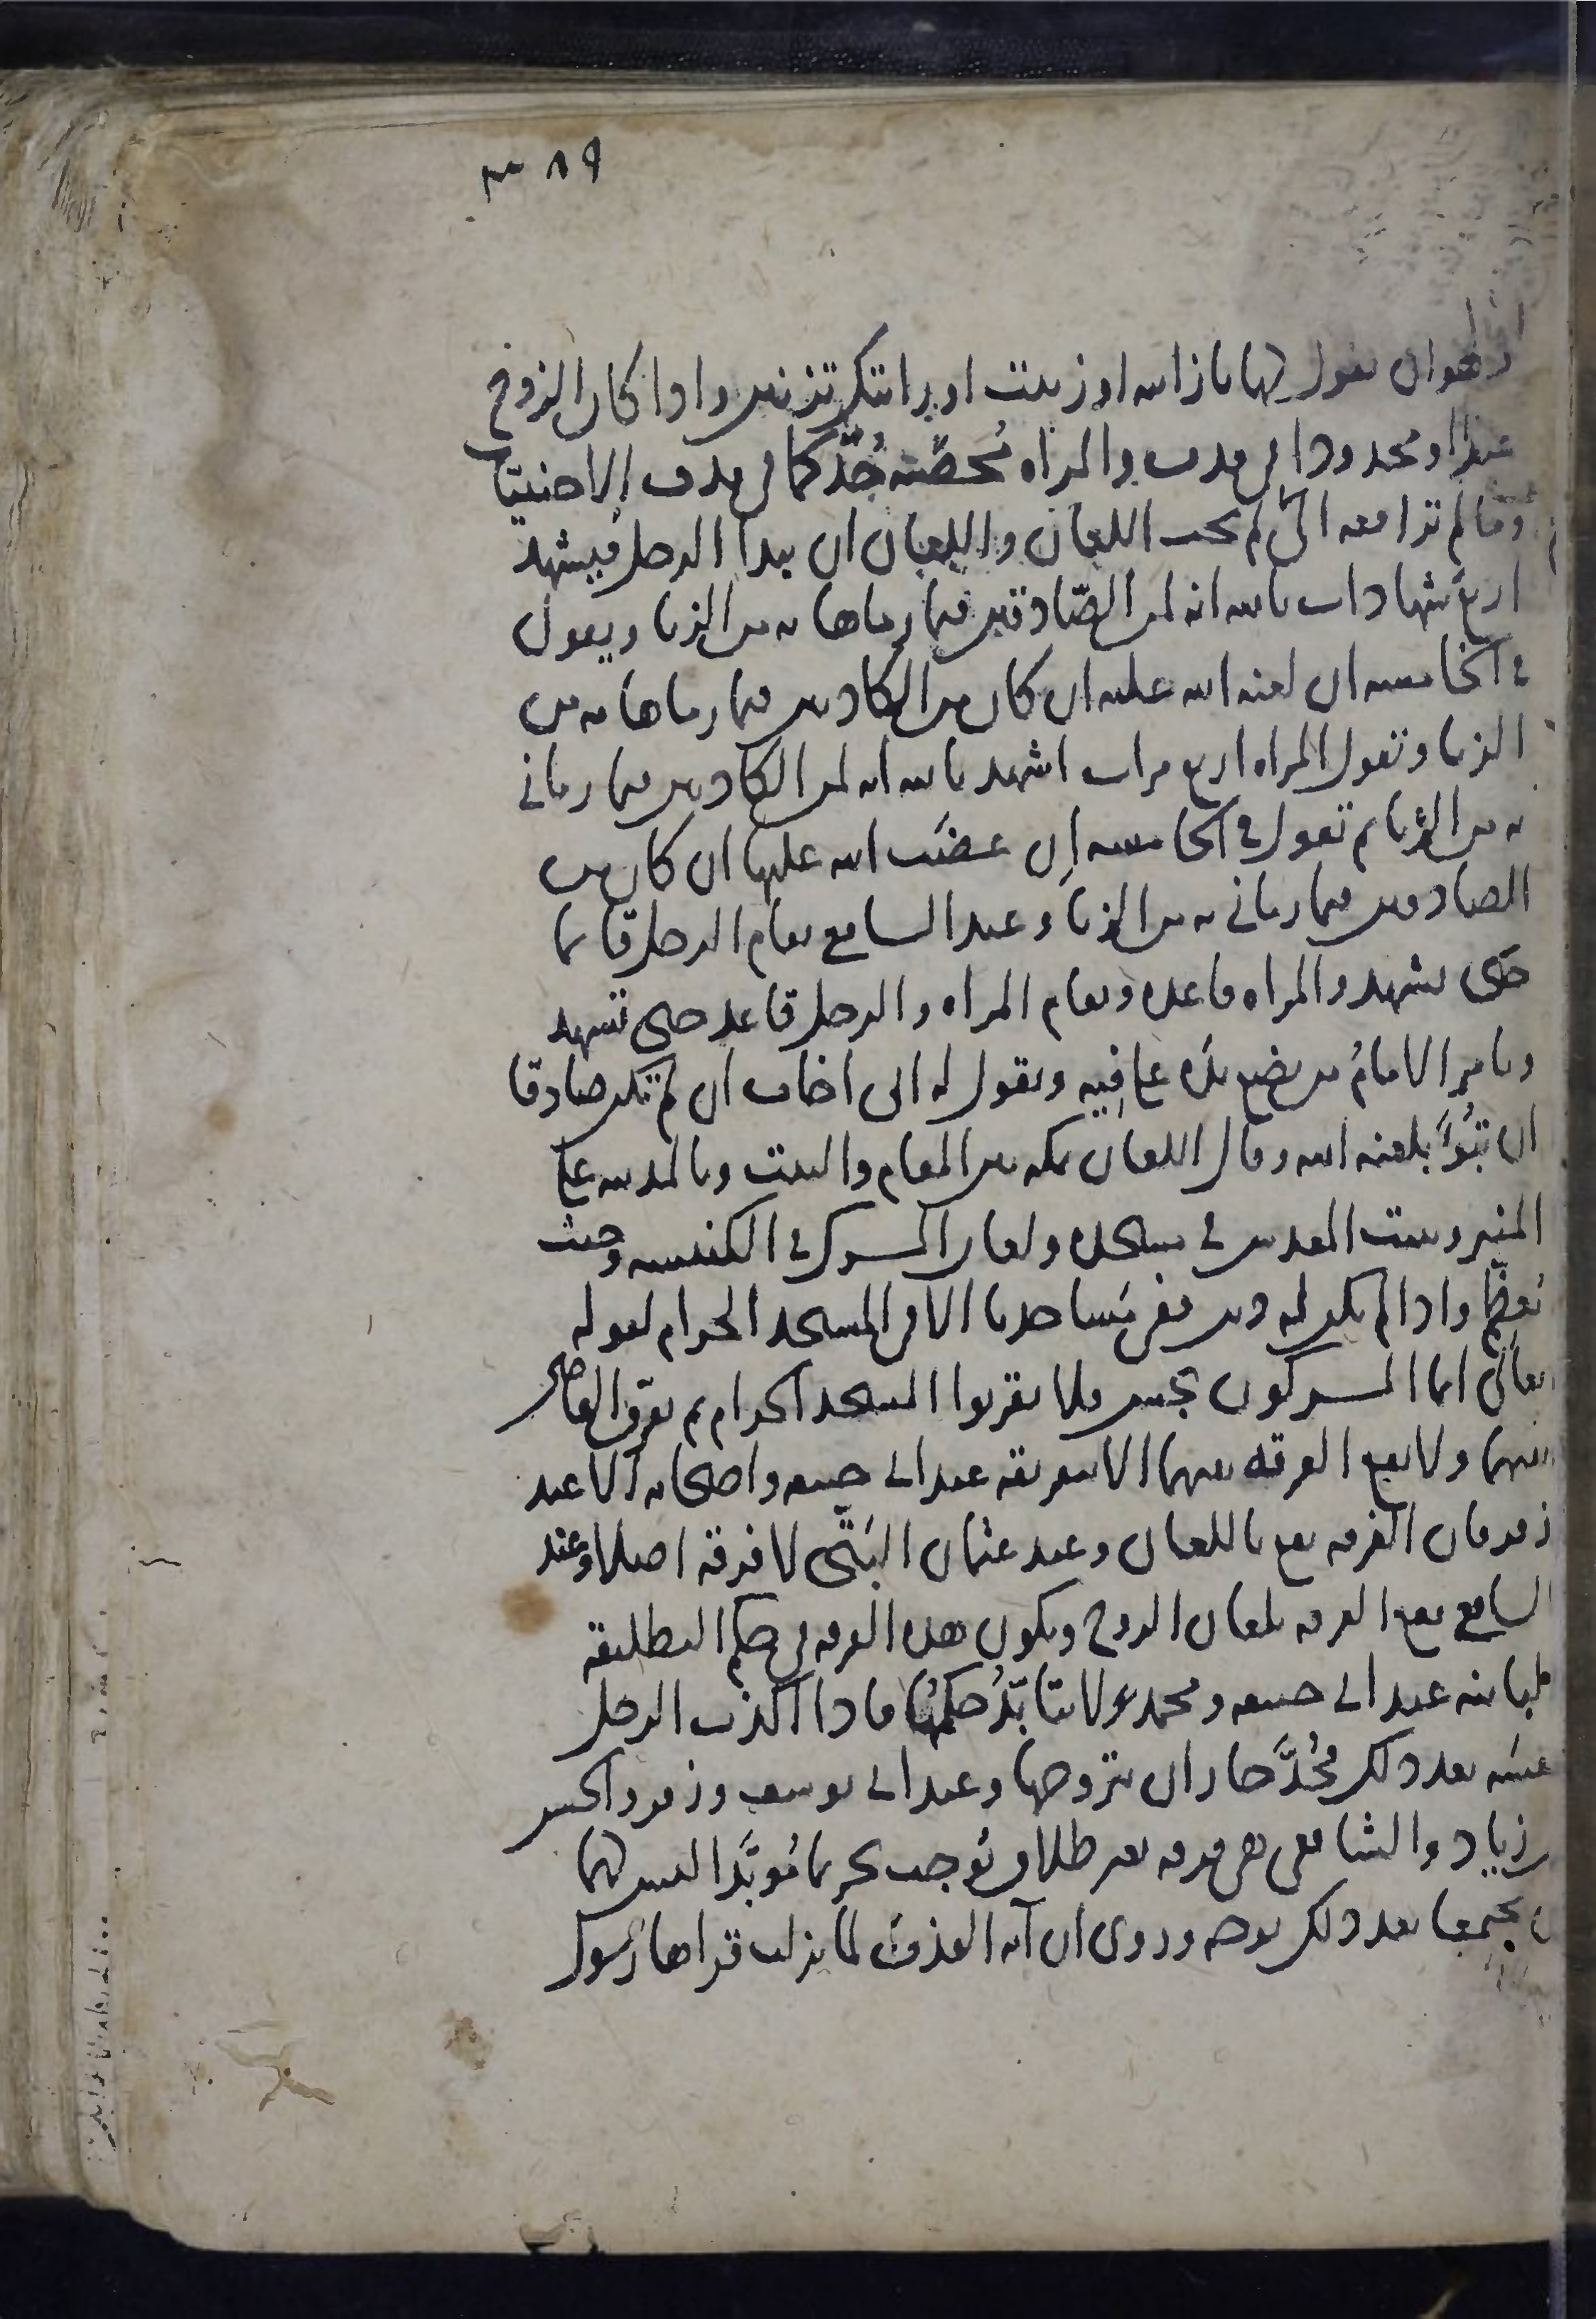 ٨٩ ٣
وهو ان يقول لها يا زانيه او زنيت او رايتك تزنين واذا كان الزوج
عبدا او محدودا في قذف والمراه محصنه حُدّ كما في قذف الاجنبيات
وما لم ترافعه الى لم يجب اللعان واللعان ان يبدا الرجل فيشهد
اربع شهادات بالله انه لمن الصّادقين فيما رماها به من الزنا ويقول
في الخامسه ان لعنه الله عليه ان كان من الكاذبين فيما رماها به من
الزنا وتقول المراه اربع مرات اشهد بالله انه لمن الكاذبين فيما رماني
به من الزنا ثم تقول في الخامسه ان غضَب الله عليها ان كان من
الصادقين فيما رماني به من الزنا وعند الشافعي يقام الرجل قائما
حتى يشهد والمراه قاعده وتقام المراه والرجل قاعد حتى تشهد
ويامر الامامُ من يضع يده على فِيه ويقول له اني اخاف ان لم تكن صادقا
ان تبُوأ بلعنه الله وقال اللعان بمكه بين المقام والبيت وبالمدينه على
المنبر وبيت المقدس في مسجده ولعان المشرك في الكنيسه وحيث
تُعظّم واذا لم يكن له دين ففي مساجدنا الا في المسجد الحرام لقوله
تعالى انما المشركون نجس فلا يقربوا المسجد الحرام ثم يفرق القاضي
بينهما ولا تقع الفرقه بينهما الا بتفريقه عند ابي حنيفه واصحابه الا عند
زفر فان الفرقه تقع باللعان وعند عثمان البَتّى لا فرقه اصلا وعند
الشافعي تقع الفرقه بلعان الزوج وتكون هذه الفرقه في حكم التطليقه
البائنه عند ابي حنيفه ومحمد ولا يتابّدُ حكمُها فاذا اكذب الرجل
نفسَه بعد ذلك فحُدَّ جاز ان يتزوجها وعند ابي يوسف وزفر والحسن
بن زياد والشافعي هي فرقه بغير طلاق تُوجب تحريما مُوبّدا ليس لهما
ان يجتمعا بعد ذلك بوجه وروى ان آيه القذف لما نزلت قراها رسول